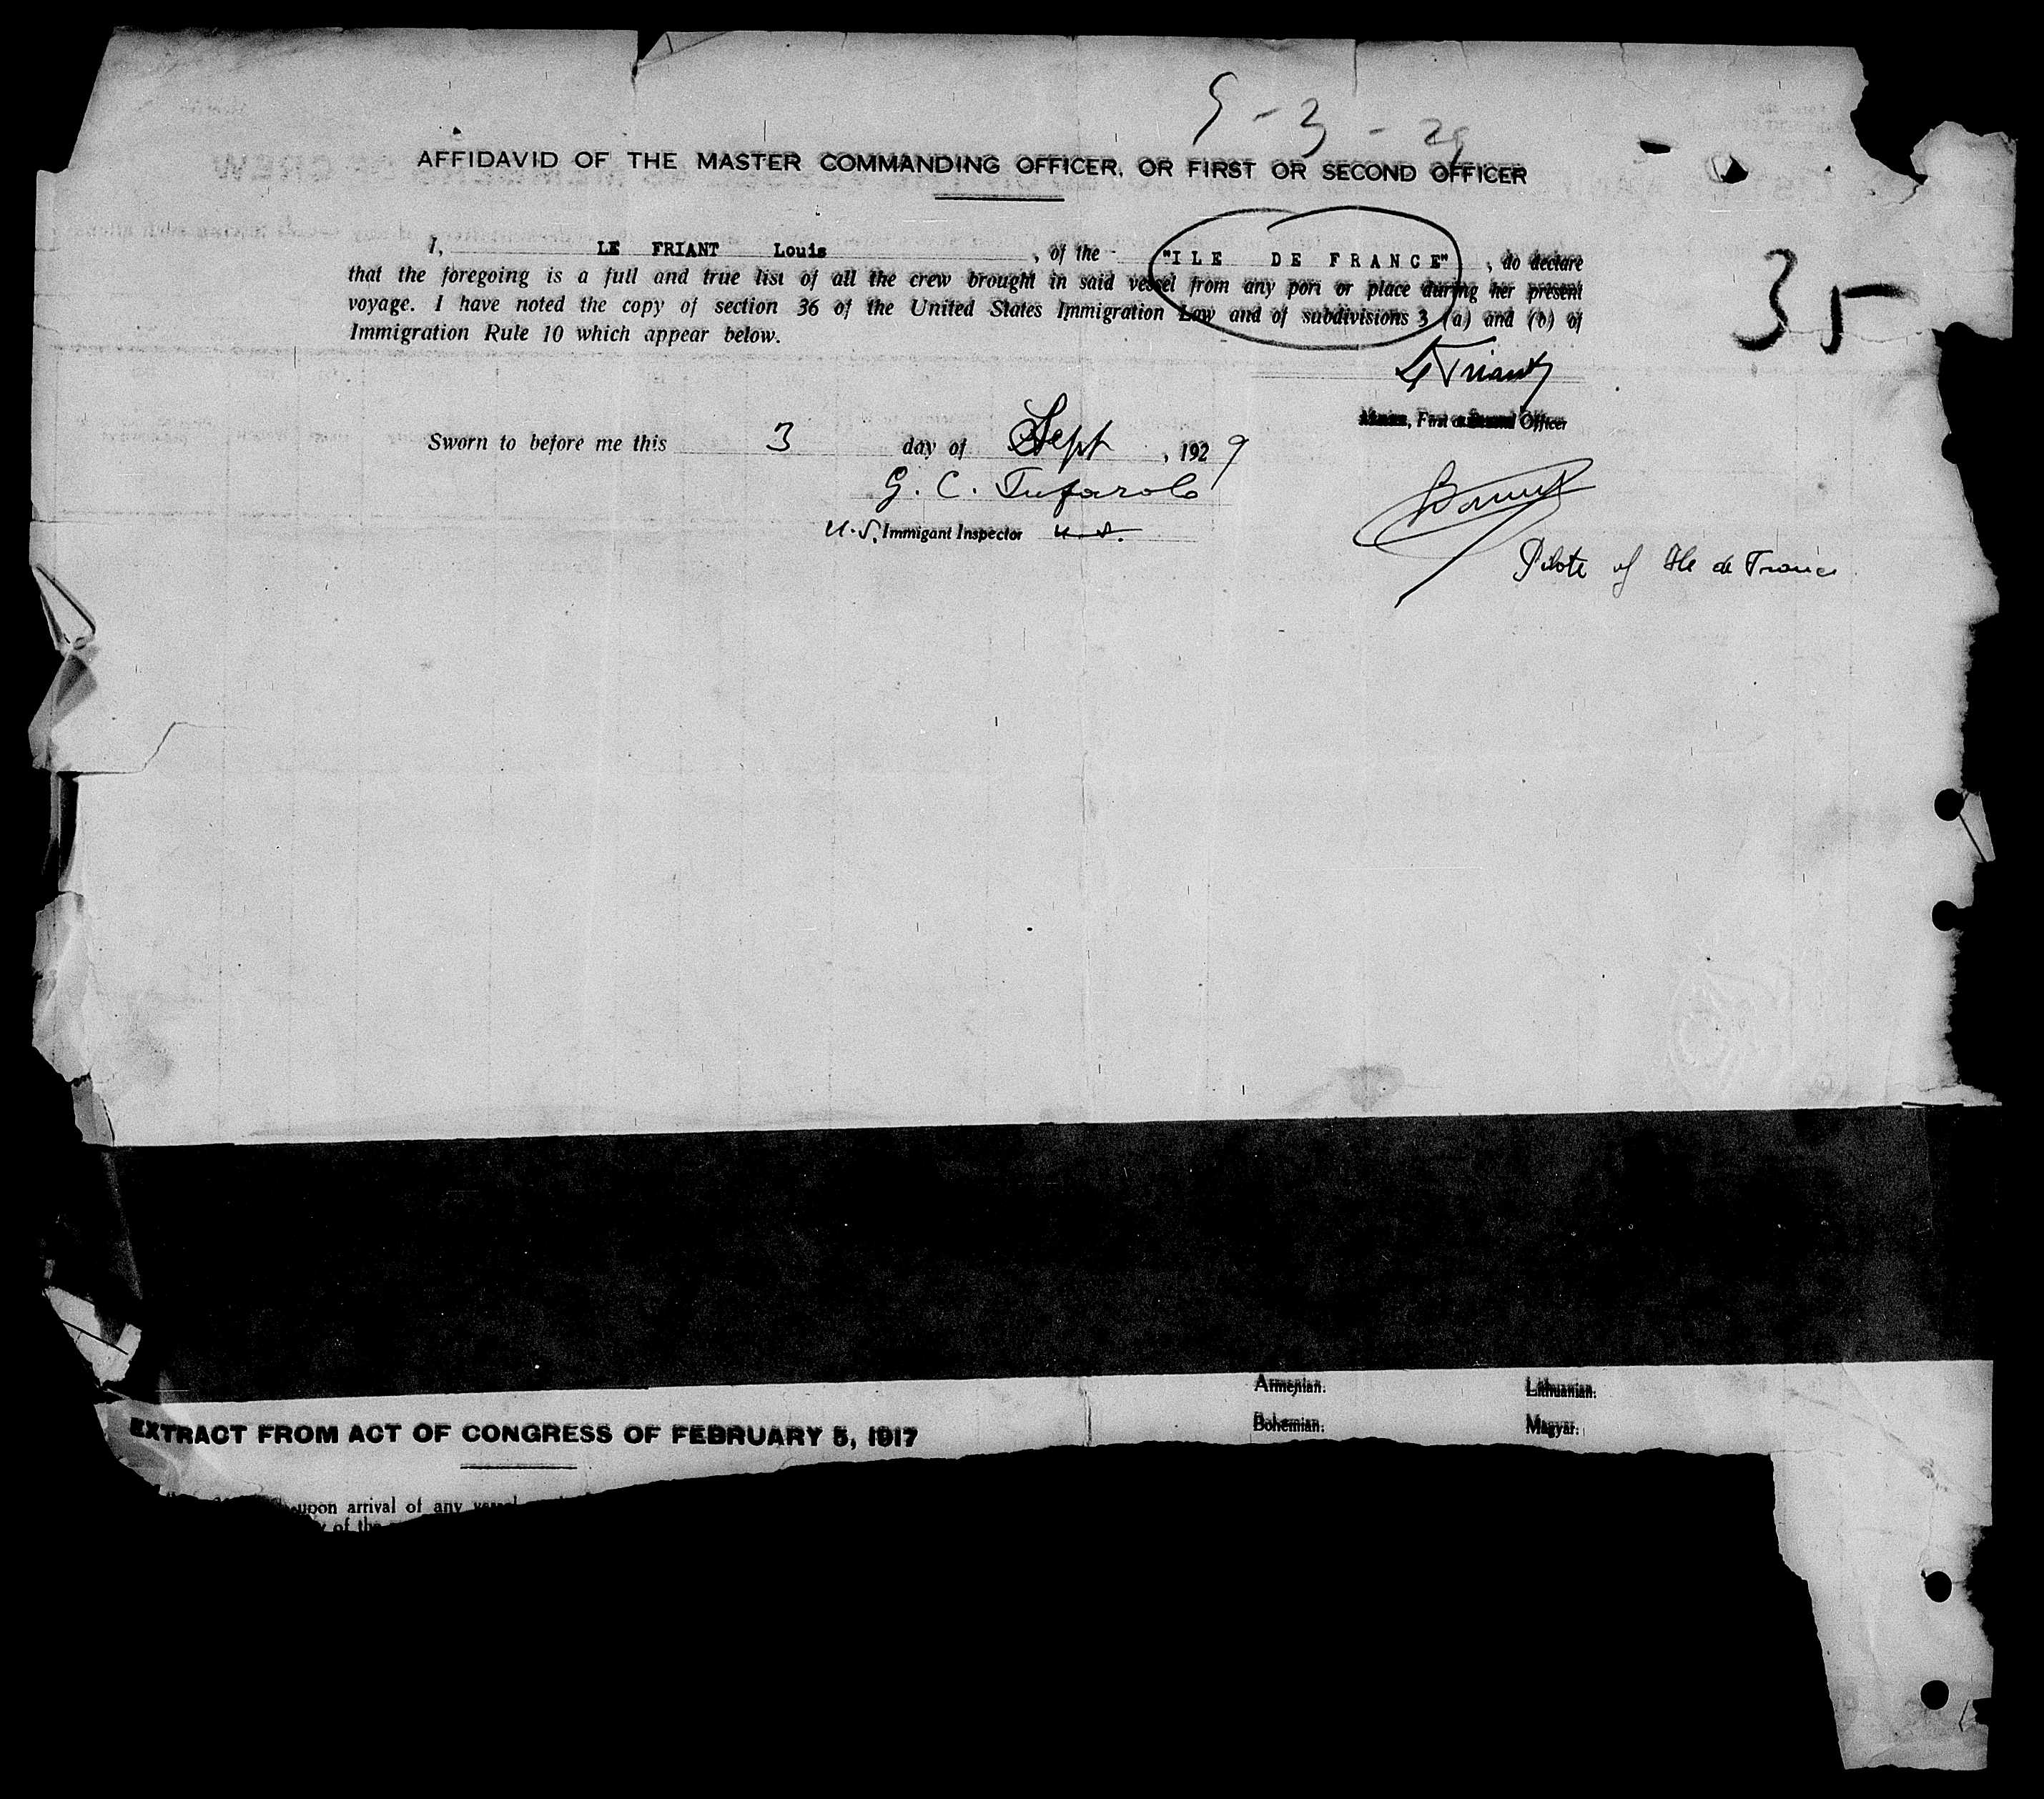 9-3-29
AFFIDAVID OF THE MASTER COMMANDING OFFICER, OR FIRST OR SECOND OFFICER
35
I, LE FRIANT Louis, of the "ILE DE FRANCE", do declare
that the foregoing is a full and true list of all the crew brought in said vessel from any port or place during her present
voyage. I have noted the copy of section 36 of the United States Immigration Law and of subdivisions 3 (a) and (b) of
Immigration Rule 10 which appear below.
Le Friant
Master, First or Second Officer
Sworn to before me this 3 day of Sept, 1929
G. C. Tufarolo
U.S. Immigant Inspector U.S.
Pilote of Ile de France
Armenian. Lithuanian.
Bohemian. Magyar.
EXTRACT FROM ACT OF CONGRESS OF FEBRUARY 5, 1917
upon arrival of any vessel
of the